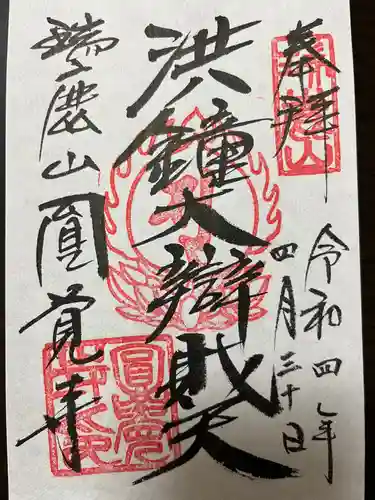 奉拝
令和四年
四月三十日
洪鐘大辯財天
瑞鹿山圓覚寺